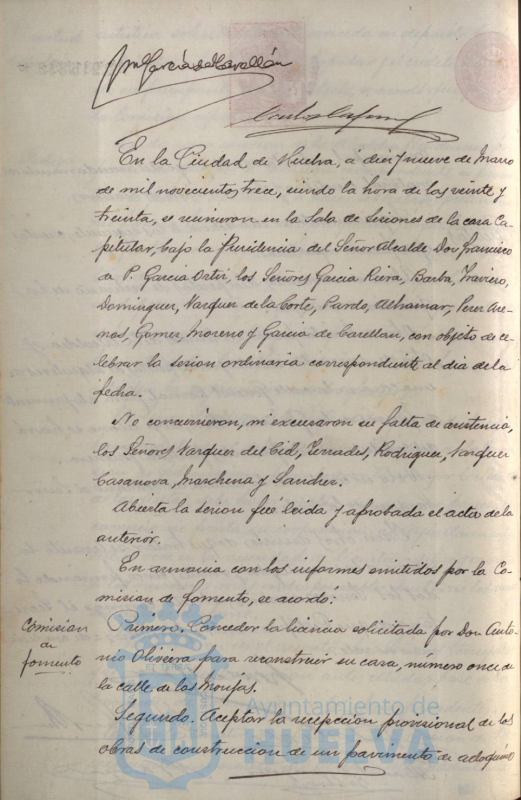 Mn García de Carellán
En la Ciudad de Huelva, á diez y nueve de Marzo
de mil novecientos trece, siendo la hora de las veinte y
treinta, se reunieron en la Sala de Sesiones de la casa Ca-
pitular, bajo la Presidencia del Señor Alcalde Don Francisco
de P. Garcia Ortiz, los Señores Garcia Riera, Barba, Traviero,
Dominguez, Vazquez de la Corte, Pardo, Alhamar, Perez Are-
nas, Gomez, Moreno y Garcia de Carellan, con objeto de ce-
lebrar la sesion ordinaria correspondiente al dia de la
fecha.
No concurrieron, ni excusaron su falta de asistencia,
los Señores Vazquez del Cid, Terrades, Rodriguez, Vazquez
Casanova, Marchena y Sanchez.
Abierta la sesion fué leida y aprobada el acta de la
anterior.
En armonia con los informes emitidos por la Co-
mision de fomento, se acordó:
Comision
de
fomento
Primero. Conceder la licencia solicitada por Don Anto-
nio Oliveira para reconstruir su casa, número once de
la calle de las Monjas.
Segundo. Aceptar la recepcion provisional de las
obras de construccion de un pavimento de adoquines
Ayuntamiento de
HUELVA